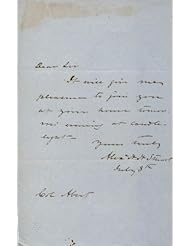 Dear Sir
It will give me
pleasure to join you
at your house tomor
row evening at candle
light.
Yours truly
Alex H H Stuart
July 8th
Col Abert